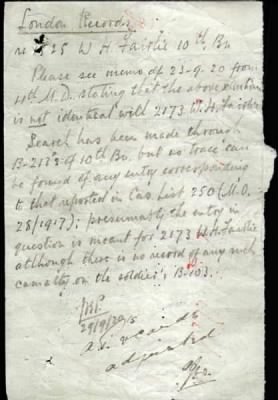 London Records
25 W H Fairlie 10th Bn
Please see memo of 23-9-20 from
4th M.D. stating that the above soldier
is not identical with 2173 W.H. Fairlie
Search has been made through
B-213s of 10th Bn, but no trace can
be found of any entry corresponding
to that reported in Cas List 250 (M.O.
28/19.7); presumably the entry in
question is meant for 2173 W.H. Fairlie
although there is no record of any such
casualty on the soldier's B.103.
29/9/20